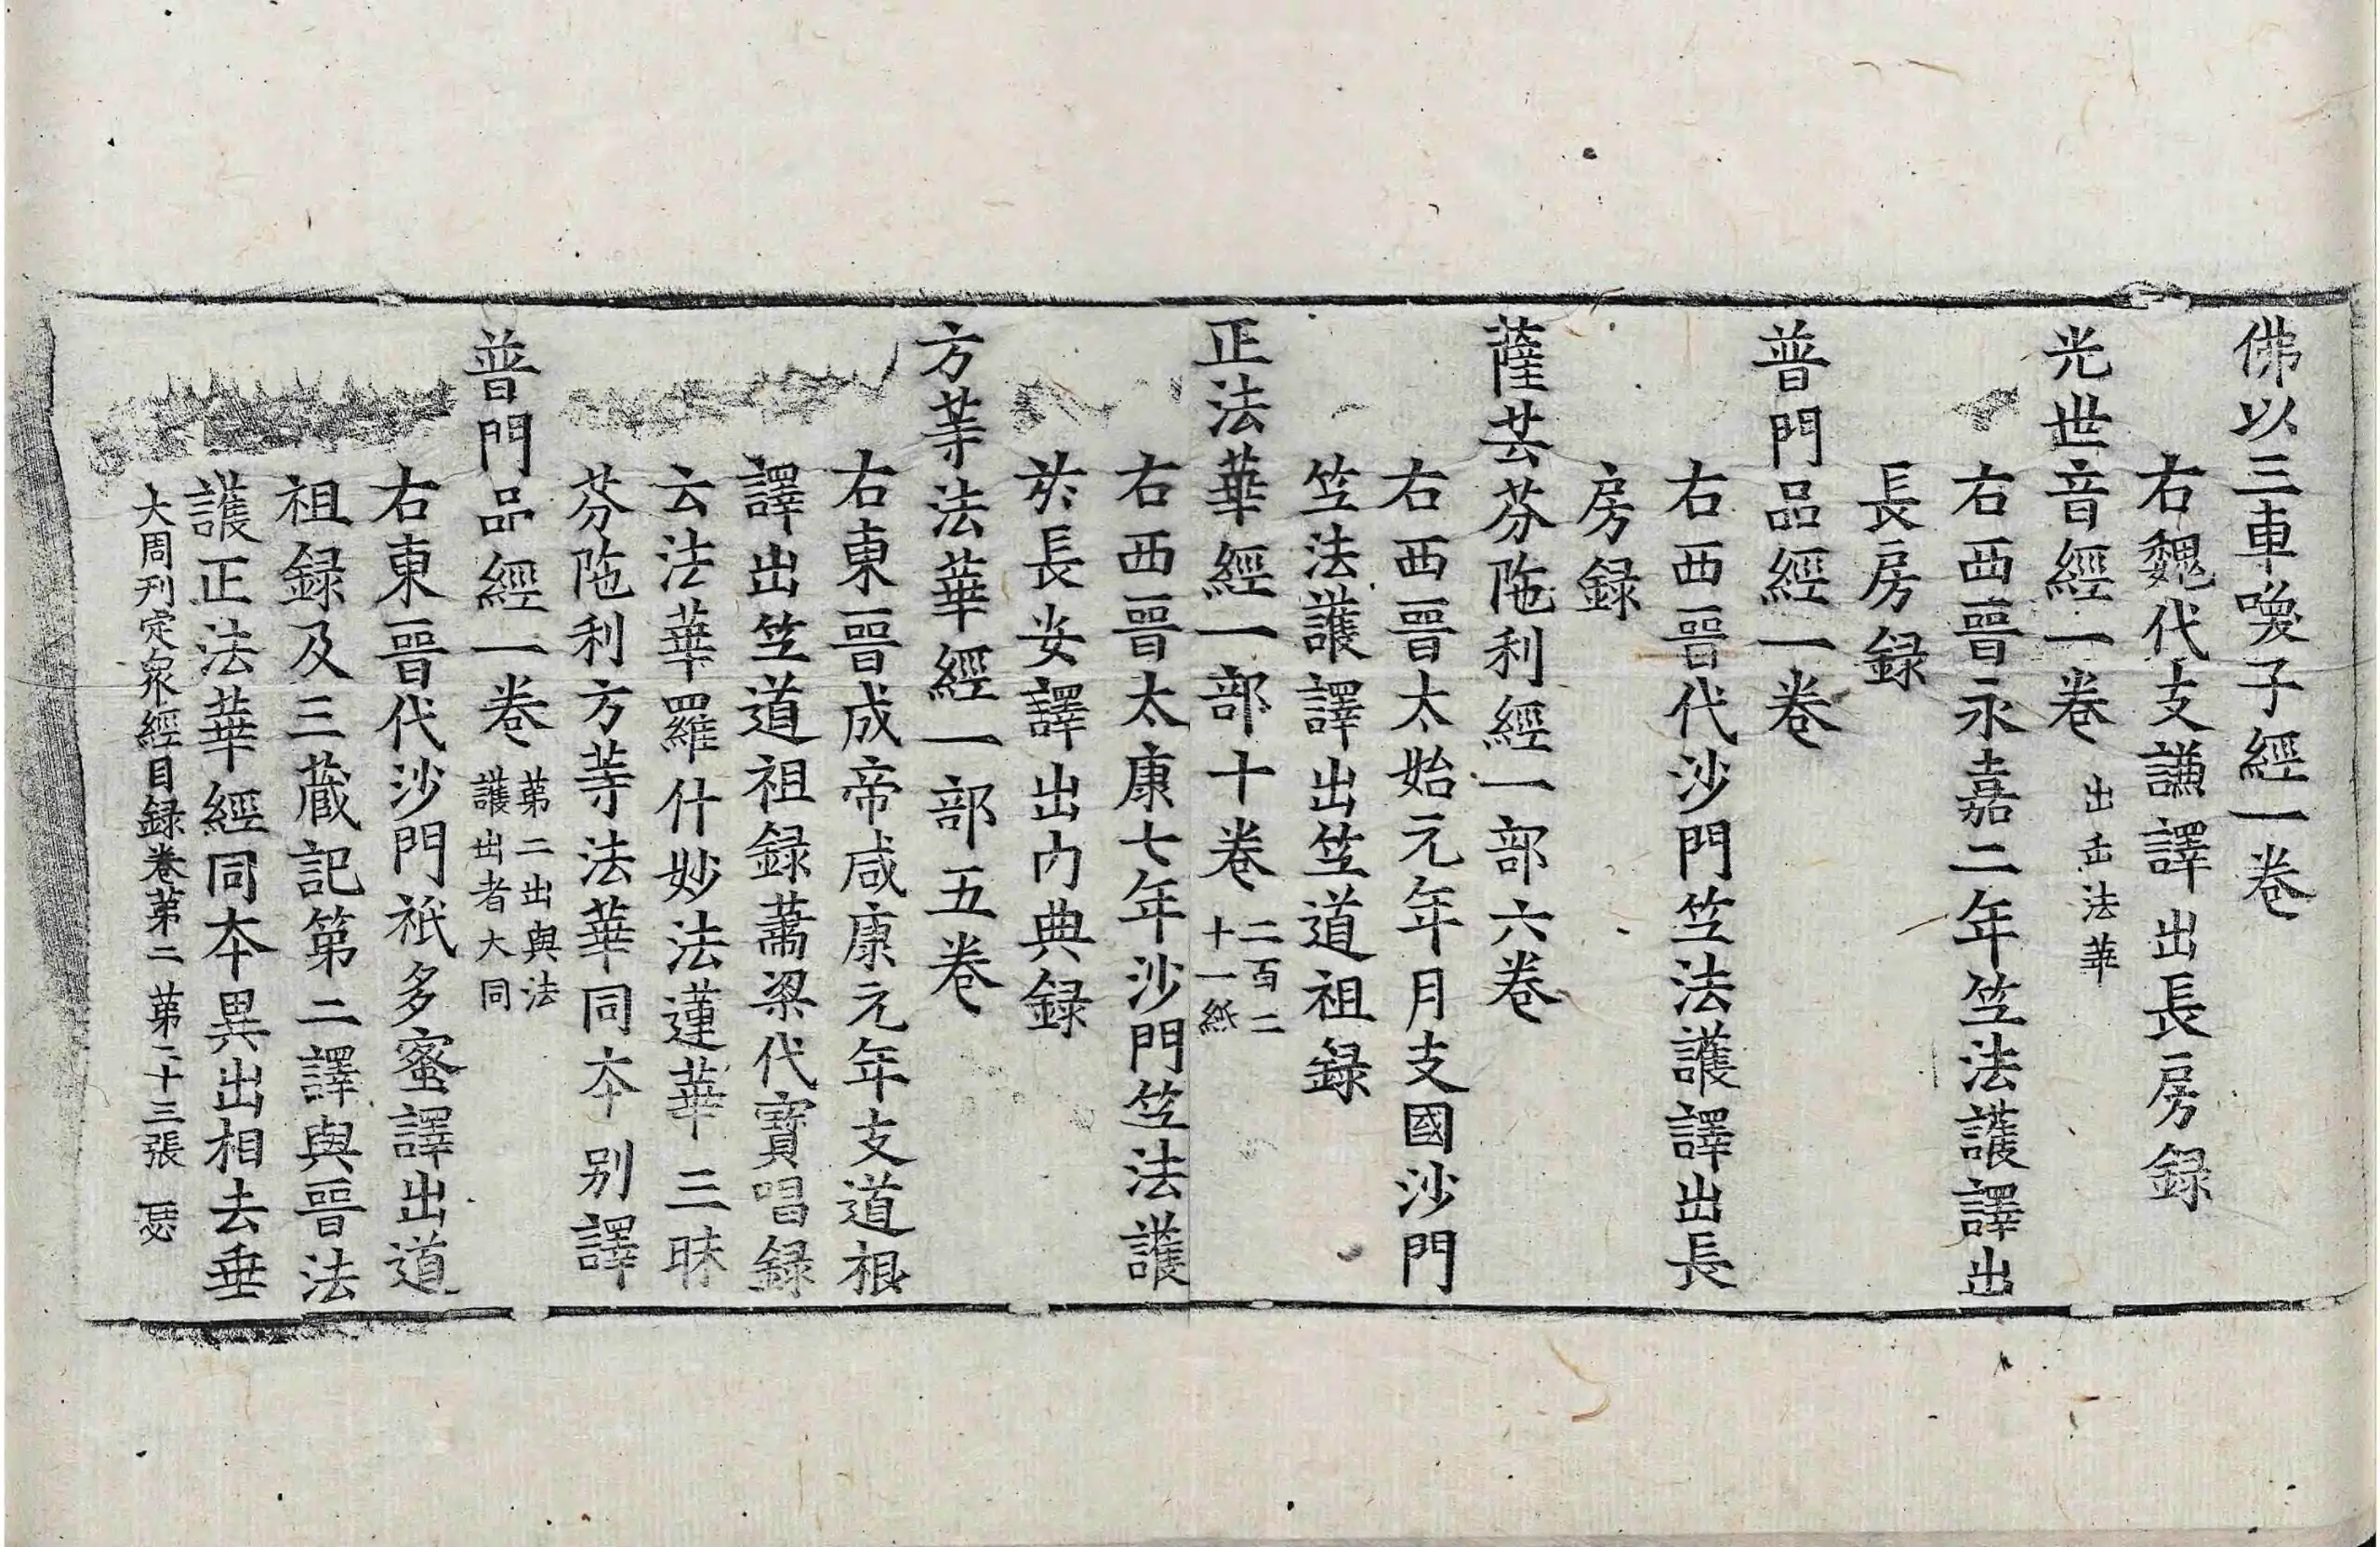 佛以三車喚子經一卷
右魏代支謙譯出長房録
光世音經一卷 出正法華
右西晉永嘉二年竺法護譯出
長房録
普門品經一卷
右西晉代沙門竺法護譯出長
房録
薩芸芬陁利經一部六卷
右西晉太始元年月支國沙門
竺法護譯出竺道祖録
正法華經一部十卷 二百二
十一紙
右西晉太康七年沙門竺法護
於長安譯出内典録
方等法華經一部五卷
右東晉成帝咸康元年支道根
譯出竺道祖録蕭梁代寶唱録
云法華羅什妙法蓮華三昧
芬陁利方等法華同夲别譯
普門品經一卷 苐二出與法
護出者大同
右東晉代沙門祇多蜜譯出道
祖録及三蔵記第二譯與晉法
護正法華經同夲異出相去垂
大周刊定衆經目録卷苐二 苐二十三張 瑟